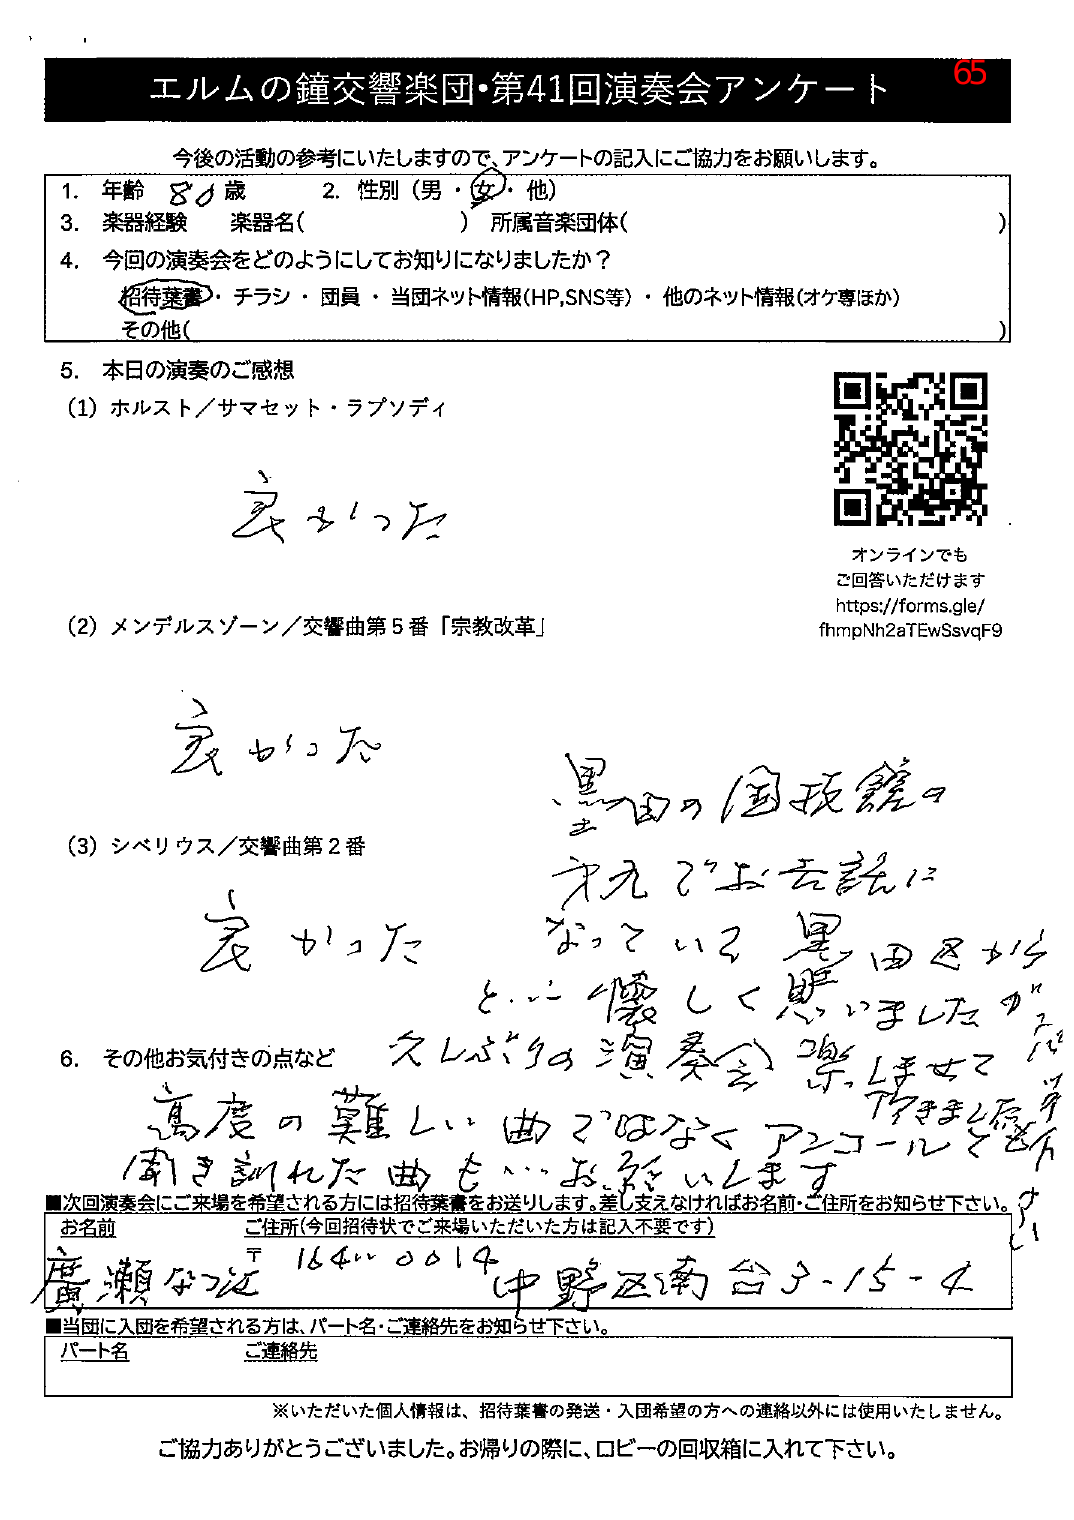 65
エルムの鐘交響楽団・第41回演奏会アンケート
今後の活動の参考にいたしますので、アンケートの記入にご協力をお願いします。
1. 年齢 80 歳 2. 性別（男・女・他）
3. 楽器経験 楽器名( ) 所属音楽団体( )
4. 今回の演奏会をどのようにしてお知りになりましたか？
招待葉書・チラシ・団員・当団ネット情報(HP,SNS等)・他のネット情報(オケ専ほか)
その他( )
5. 本日の演奏のご感想
(1) ホルスト／サマセット・ラプソディ
良かった
オンラインでも
ご回答いただけます
https://forms.gle/
fhmpNh2aTEwSsvqF9
(2) メンデルスゾーン／交響曲第5番「宗教改革」
良かった
(3) シベリウス／交響曲第2番
良かった
墨田の国技館の
第九でお世話に
なっている墨田区から
といい懐しく思いましたが
6. その他お気付きの点など
久しぶりの演奏会楽しませて
頂きました
高度の難しい曲ではなくアンコールでも
聞き訓れた曲も…お願いします
■次回演奏会にご来場を希望される方には招待葉書をお送りします。差し支えなければお名前・ご住所をお知らせ下さい。
お名前 ご住所(今回招待状でご来場いただいた方は記入不要です)
廣瀬なつ江 〒164-0014 中野区南台3-15-4
■当団に入団を希望される方は、パート名・ご連絡先をお知らせ下さい。
パート名 ご連絡先
※いただいた個人情報は、招待葉書の発送・入団希望の方への連絡以外には使用いたしません。
ご協力ありがとうございました。お帰りの際に、ロビーの回収箱に入れて下さい。